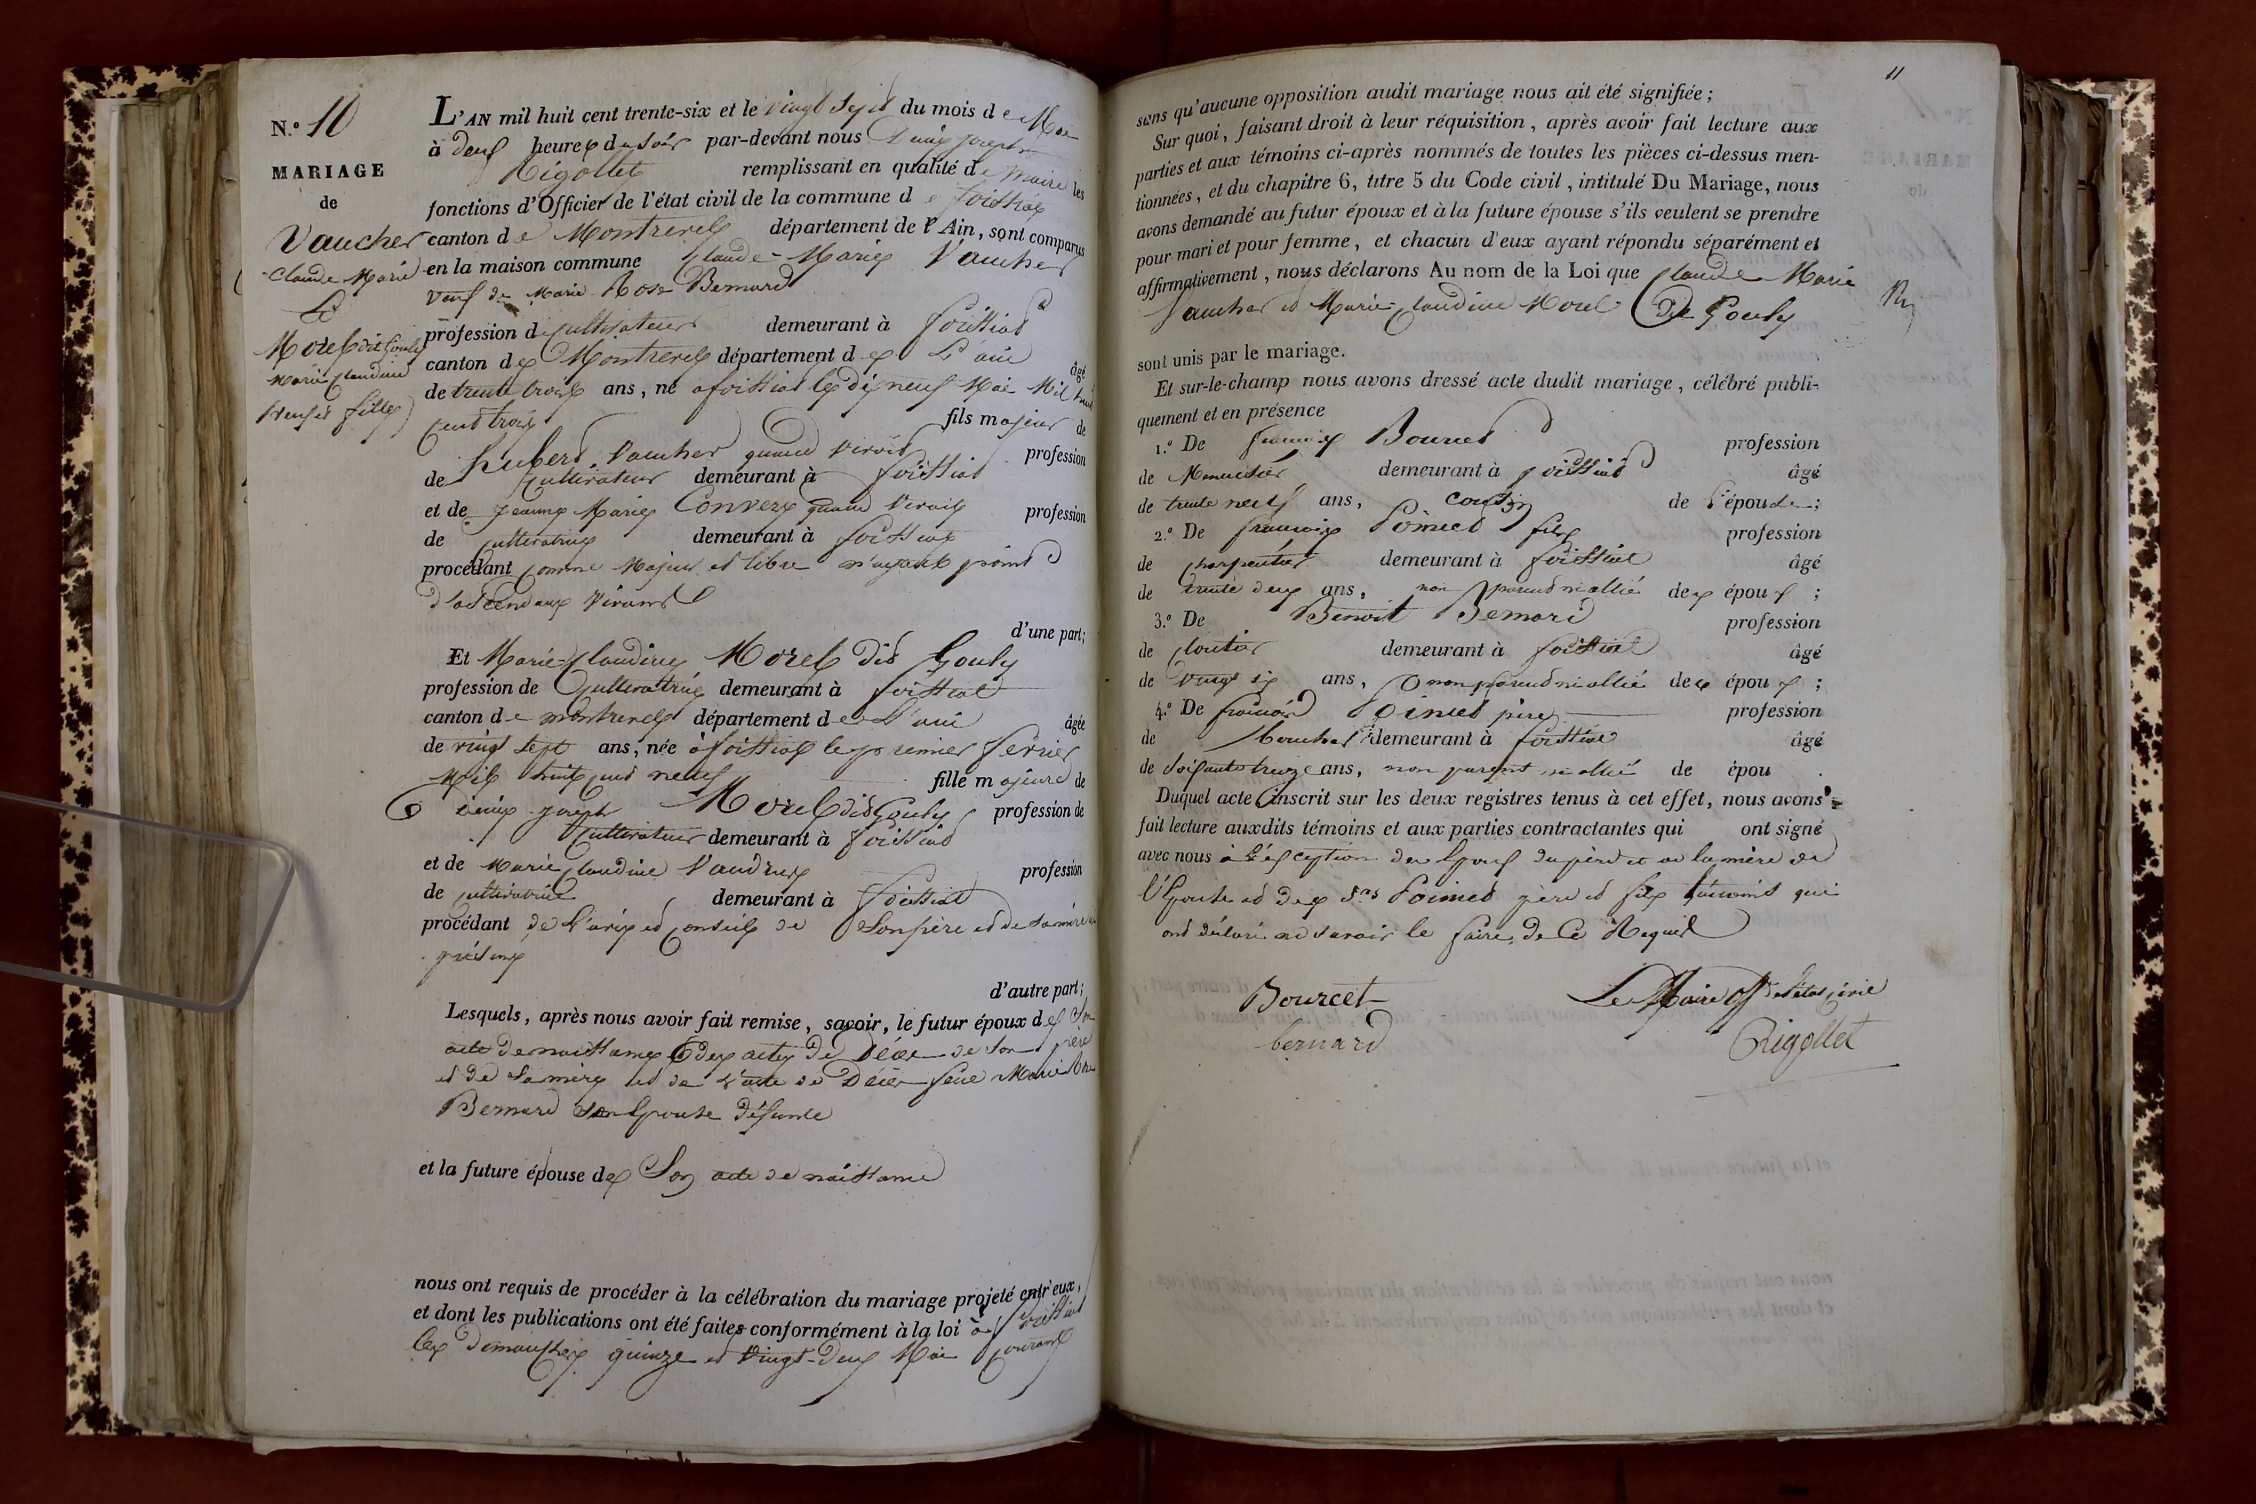 N.º 10
MARIAGE
de
Vaucher
Claude Marie
Et
Morel dit Gouly
Marie Claudine
veuf et fille
L'AN mil huit cent trente-six et le vingt sept du mois de Mai
à deux heures du soir par-devant nous Denis Joseph
Rigollet remplissant en qualité de Maire les
fonctions d'Officier de l'état civil de la commune de foissiat
canton de Montrevel département de l'Ain, sont comparus
en la maison commune Claude-Marie Vaucher
veuf de Marie Rose Bernard
profession de Cultivateur demeurant à foissiat
canton de Montrevel département de L'ain âgé
de trente trois ans, né a foissiat le dix neuf Mai Mil huit
cent trois fils majeur de
hubert Vaucher quand vivoit profession
de Cultivateur demeurant à foissiat
et de jeanne Marie Convers quand Vivoit profession
de Cultivatrice demeurant à foissiat
procédant comme Majeur et libre n'ayant point
d'ascendans vivants
d'une part;
Et Marie-Claudine Morel dit Gouly
profession de Cultivatrice demeurant à foissiat
canton de montrevel département de L'ain âgée
de vingt sept ans, née à foissiat le premier fevrier
Mil huit cent neuf fille majeure de
Denis joseph Morel dit Gouly profession de
Cultivateur demeurant à foissiat
et de Marie Claudine Vaudrey profession
de cultivatrice demeurant à foissiat
procédant de l'avis et conseils de Son père et de sa mère ici
présens
d'autre part;
Lesquels, après nous avoir fait remise, savoir, le futur époux de Son
acte de naissance Et des actes de Décès de son père
et de sa mère et de l'acte de Décès feue Marie Rose
Bernard son Epouse défunte
et la future épouse de Son acte de naissance
nous ont requis de procéder à la célébration du mariage projeté entr'eux,
et dont les publications ont été faites conformément à la loi à foissiat
les dimanches quinze et vingt-deux Mai courant
11
sans qu'aucune opposition audit mariage nous ait été signifiée;
Sur quoi, faisant droit à leur réquisition, après avoir fait lecture aux
parties et aux témoins ci-après nommés de toutes les pièces ci-dessus men-
tionnées, et du chapitre 6, titre 5 du Code civil, intitulé Du Mariage, nous
avons demandé au futur époux et à la future épouse s'ils veulent se prendre
pour mari et pour femme, et chacun d'eux ayant répondu séparément et
affirmativement, nous déclarons Au nom de la Loi que Claude Marie
Vaucher et Marie-Claudine Morel Dit Gouly
sont unis par le mariage.
Et sur-le-champ nous avons dressé acte dudit mariage, célébré publi-
quement et en présence
1.º De françois Bourcet profession
de Menuisier demeurant à foissiat âgé
de trente neuf ans, cousin de l'épouse;
2.º De françois Poincet fils profession
de charpentier demeurant à foissiat âgé
de trente deux ans, non parent ni allié des époux;
3.º De Benoit Bernard profession
de cloutier demeurant à foissiat âgé
de vingt six ans, non parent ni allié des époux;
4.º De françois Poincet père profession
de demeurant à foissiat âgé
de soixante treize ans, non parent ni allié de épou .
Duquel acte inscrit sur les deux registres tenus à cet effet, nous avons
fait lecture auxdits témoins et aux parties contractantes qui ont signé
avec nous à L'exception de Epoux du père et de la mère de
l'Epouse et des srs Poincet père et fils témoins qui
ont déclaré ne savoir le faire, de ce Requis
Bourcet
bernard
Le Maire Off. de l'état civil
Rigollet